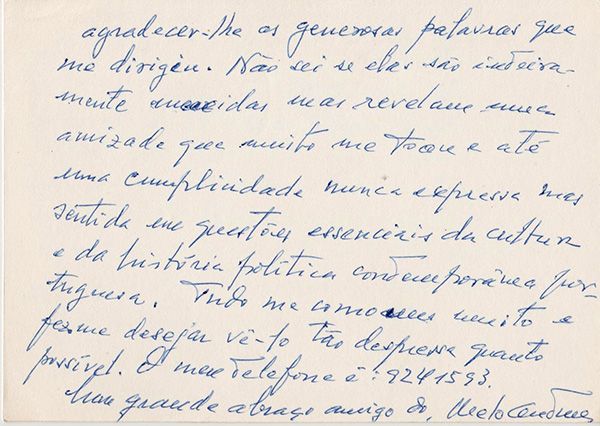 agradecer-lhe as generosas palavras que
me dirigiu. Não sei se elas são inteira-
mente merecidas mas revelam uma
amizade que muito me tocou e até
uma cumplicidade nunca expressa mas
sentida em questões essenciais da cultura
e da história política contemporânea por-
tuguesa. Tudo me comoveu muito e
fez-me desejar vê-lo tão depressa quanto
possível. O meu telefone é: 9241593.
Um grande abraço amigo do,